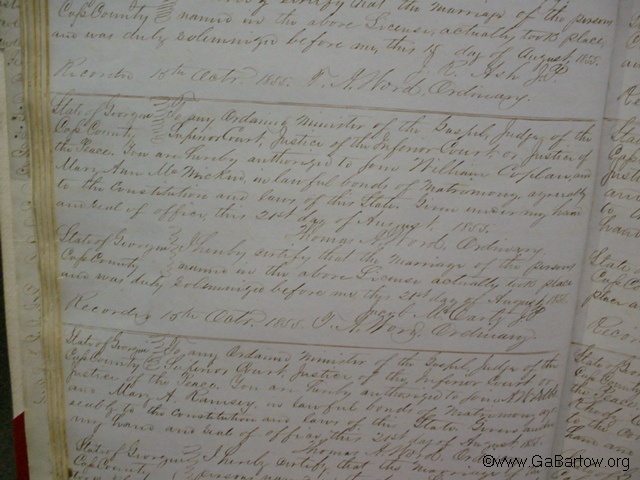 certify that the marriage of the persons
Cass County named in the above License, actually took place,
and was duly solemnized before me, this 18 day of August, 1855.
Ash J.P.
Recorded 18th Octr. 1855. T. A. Word, Ordinary.
State of Georgia To any Ordained Minister of the Gospel, Judge of the
Cass County Superior Court, Justice of the Inferior Court, or Justice of
the Peace. You are hereby authorized to join William Coplan, and
Mary Ann in lawful bonds of Matrimony, agreeably
to the Constitution and laws of this State. Given under my hand
and seal of office, this 21st day of August, 1855.
Thomas A. Word, Ordinary
State of Georgia I hereby certify that the marriage of the persons
Cass County named in the above License actually took place
and was duly solemnized before me, this 21st day of August, 1855.
J.P.
Recorded 18th Octr. 1855. T. A. Word, Ordinary.
State of Georgia To any Ordained Minister of the Gospel, Judge of the
Cass County Superior Court, Justice of the Inferior Court, or
Justice of the Peace. You are hereby authorized to join
and Mary A. Ramsey, in lawful bonds of Matrimony, agre
eably to the Constitution and laws of this State. Given under
my hand and seal of office, this 21st day of August, 1855.
Thomas A. Word,
State of Georgia I hereby certify that the marriage of the
Cass County
©www.GaBartow.org